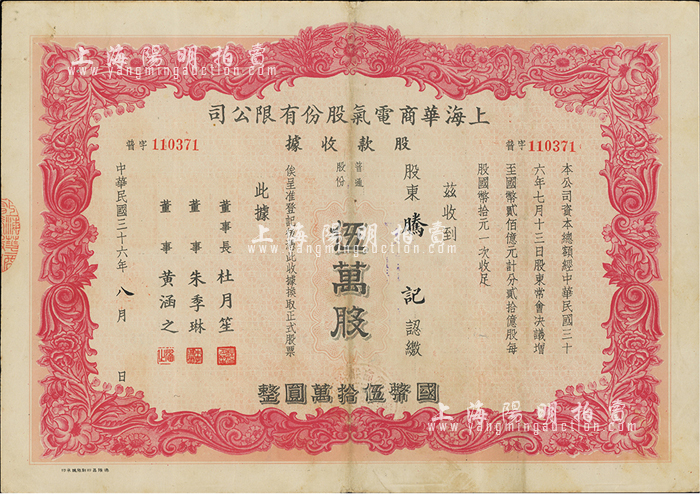 上海陽明拍賣
www.yangmingauction.com
上海陽明拍賣
www.yangmingauction.com
司公限有份股氣電商華海上
據收款股
字 110371
字 110371
本公司資本總額經中華民國三十
六年七月十三日股東常會決議增
至國幣貳佰億元計分貳拾億股每
股國幣拾元一次收足
茲收到
股東 騰記 認繳
普通
股份
伍萬股
俟呈准登記後憑此收據換取正式股票
此據
董事長 杜月笙
董事 朱季琳
董事 黃涵之
中華民國三十六年八月 日
整圓萬拾伍幣國
上海陽明拍賣
www.yangmingauction.com
上海陽明拍賣
www.yangmingauction.com
上海陽明拍賣
www.yangmingauction.com